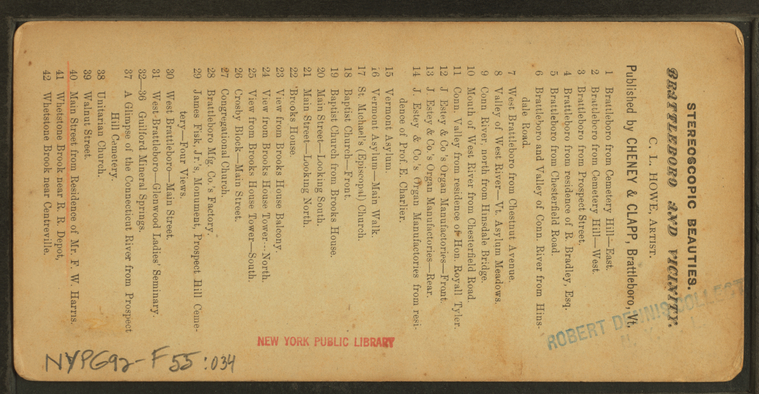 STEREOSCOPIC BEAUTIES.
BRATTLEBORO AND VICINITY.
C. L. HOWE, ARTIST.
Published by CHENEY & CLAPP, Brattleboro, Vt.
1 Brattleboro from Cemetery Hill—East.
2 Brattleboro from Cemetery Hill—West
3 Brattleboro from Prospect Street.
4 Brattleboro from residence of R. Bradley, Esq.
5 Brattleboro from Chesterfield Road.
6 Brattleboro and Valley of Conn. River from Hins-
dale Road.
7 West Brattleboro from Chestnut Avenue.
8 Valley of West River—Vt. Asylum Meadows.
9 Conn River, north from Hinsdale Bridge.
10 Mouth of West River from Chesterfield Road.
11 Conn. Valley from residence of Hon. Royall Tyler.
12 J Estey & Co's Organ Manufactories—Front
13 J. Estey & Co's Organ Manufactories—Rear.
14 J. Estey & Co's Organ Manufactories from resi-
dence of Prof. E. Charlier.
15 Vermont Asylum.
16 Vermont Asylum—Main Walk.
17 St. Michael's (Episcopal) Church.
18 Baptist Church—Front.
19 Baptist Church from Brooks House.
20 Main Street—Looking South.
21 Main Street—Looking North.
22 Brooks House.
23 View from Brooks House Balcony.
24 View from Brooks House Tower—North.
25 View from Brooks House Tower—South.
26 Crosby Block—Main Street.
27 Congregational Church.
28 Brattleboro Mfg. Co's Factory.
29 James Fisk, Jr's, Monument, Prospect Hill Ceme-
tery—Four Views.
30 West Brattleboro—Main Street.
31 West Brattleboro—Glenwood Ladies' Seminary.
32-36 Guilford Mineral Springs.
37 A Glimpse of the Connecticut River from Prospect
Hill Cemetery.
38 Unitarian Church.
39 Walnut Street.
40 Main Street from Residence of Mr. F. W. Harris.
41 Whetstone Brook near R. R. Depot,
42 Whetstone Brook near Centreville.
ROBERT DENNIS COLLECT
NEW YORK PUBLIC LIBRARY
NYPG92-F55:034